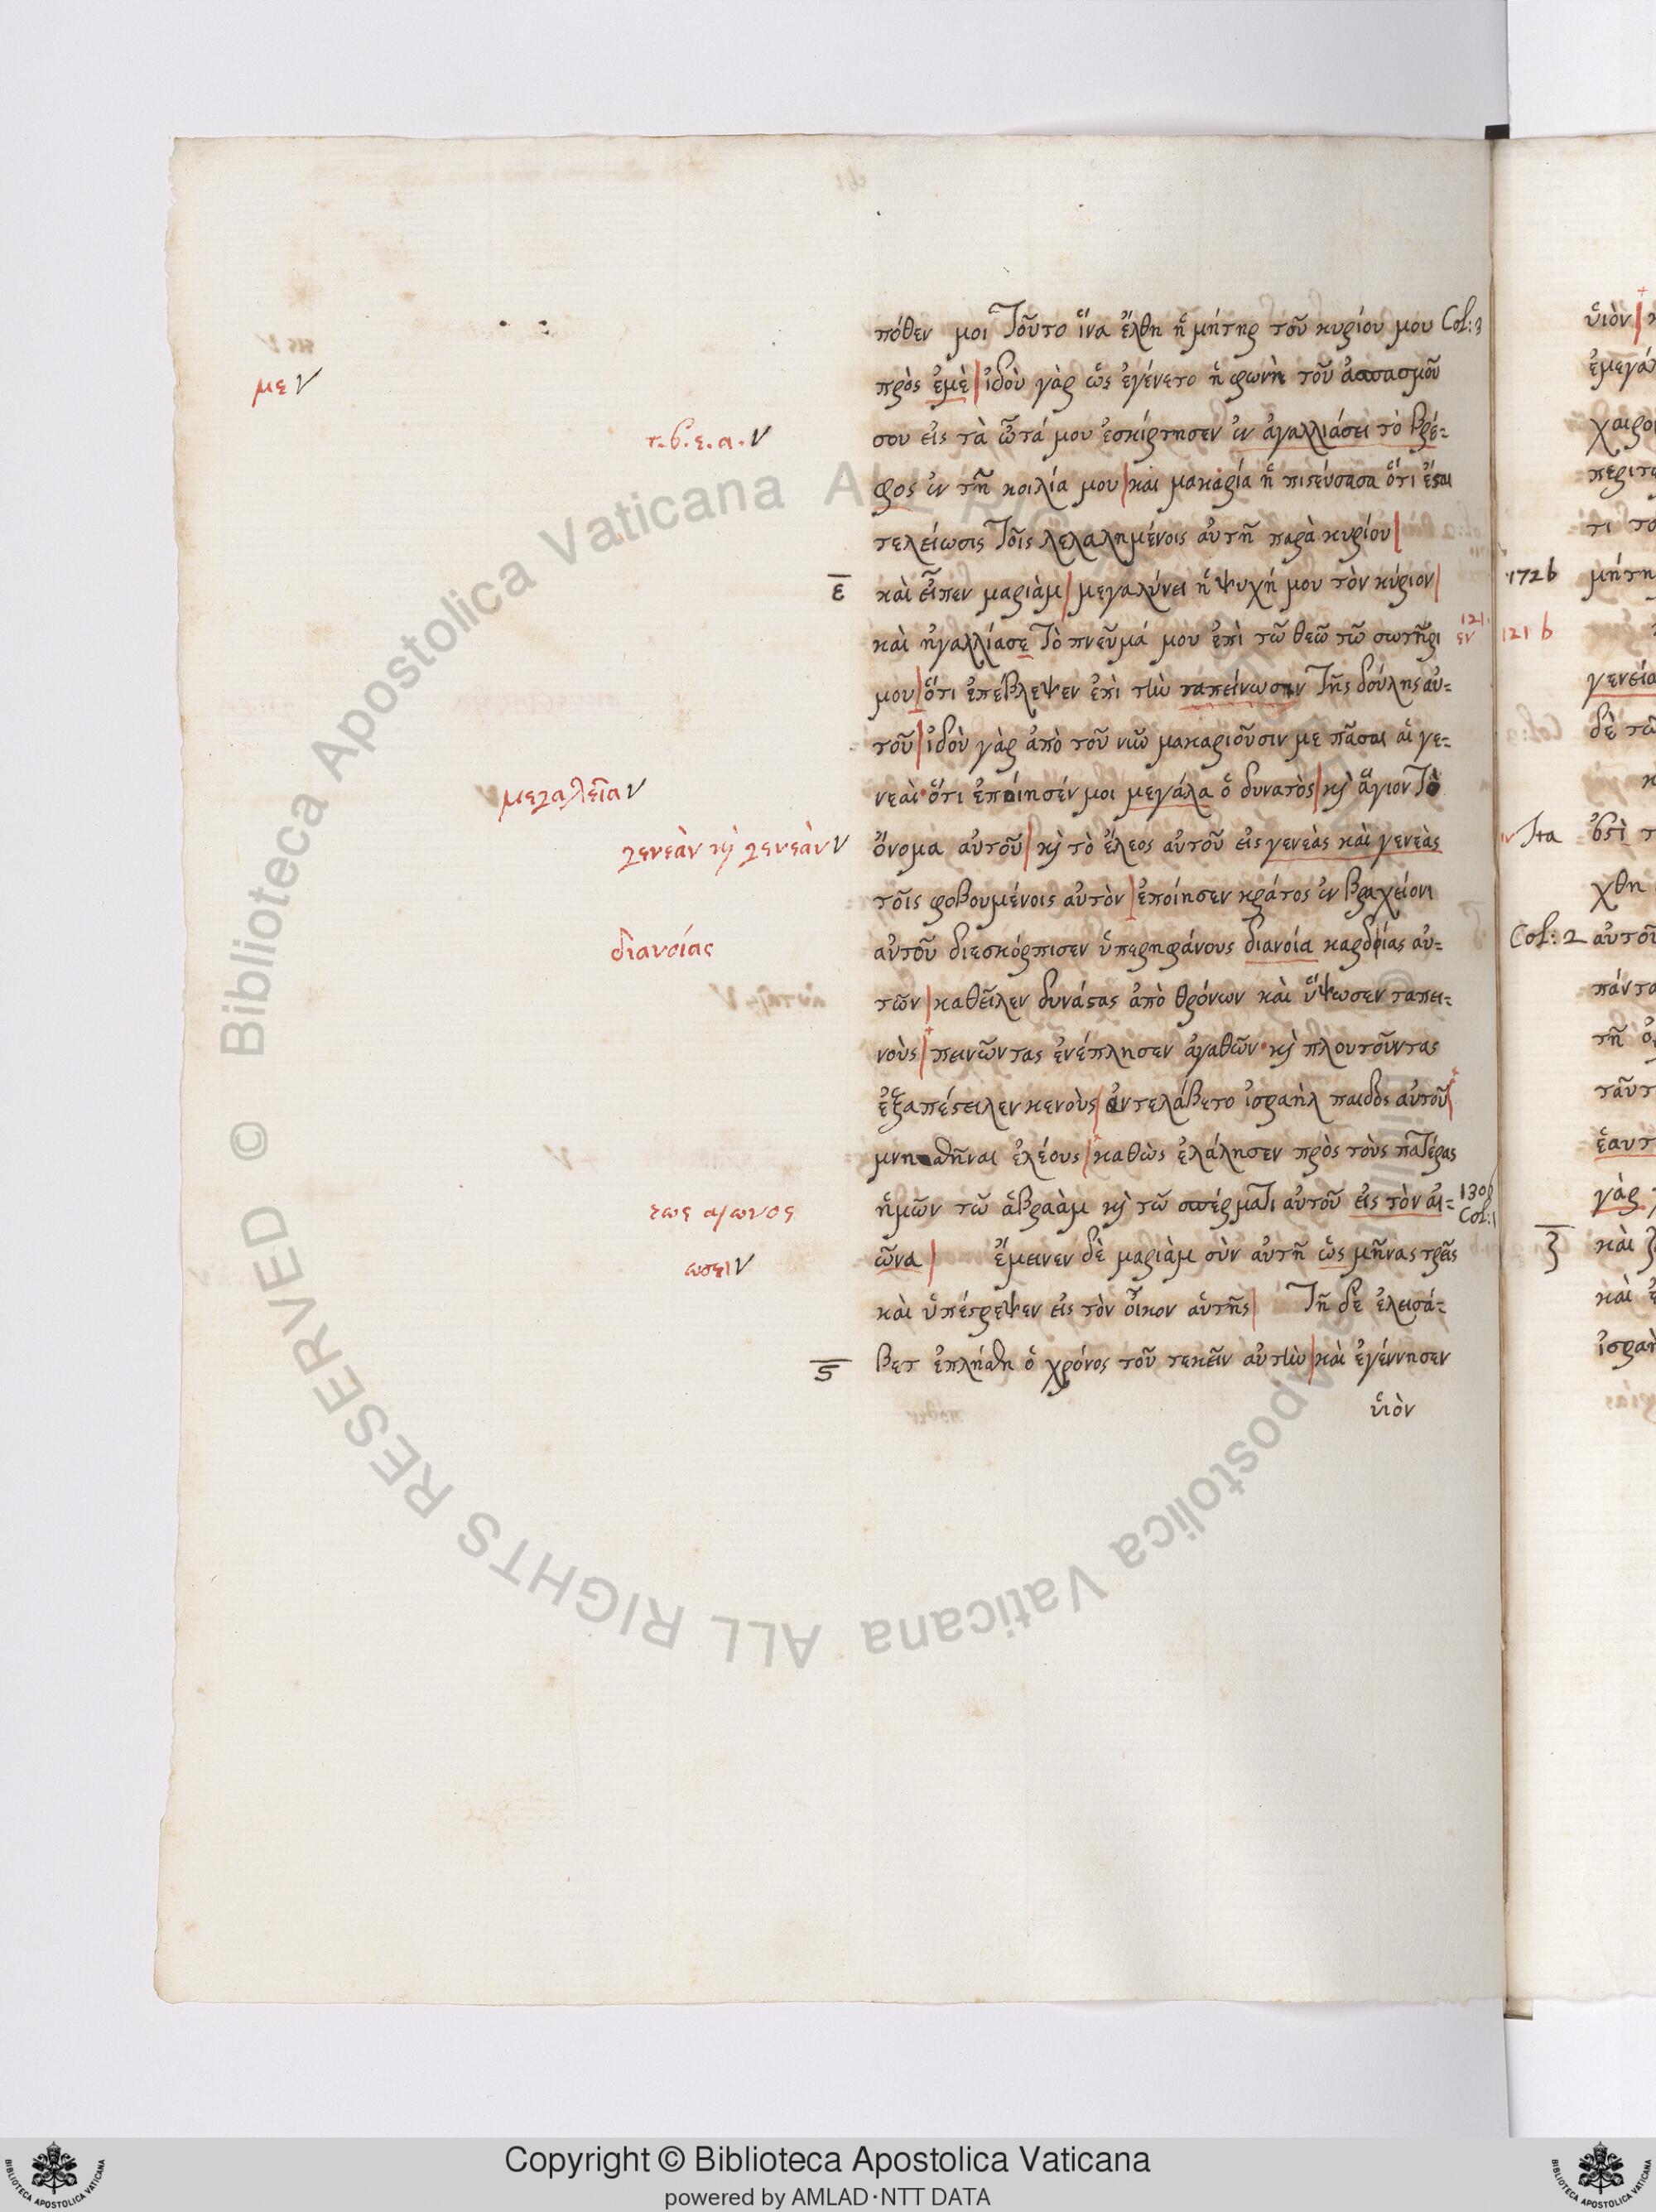 πόθεν μοι τοῦτο ἵνα ἔλθη ἡ μήτηρ τοῦ κυρίου μου Col:3
με V
πρὸς ἐμὲ | ἰδοὺ γὰρ ὡς ἐγένετο ἡ φωνὴ τοῦ ἀσπασμοῦ
τ.β.ε.α. V
σου εἰς τὰ ὦτά μου ἐσκίρτησεν ἐν ἀγαλλιάσει τὸ βρέ-
φος ἐν τῆ κοιλία μου | καὶ μακαρία ἡ πιστεύσασα ὅτι ἔσται
τελείωσις τοῖς λελαλημένοις αὐτῆ παρὰ κυρίου |
ε καὶ εἶπεν μαριὰμ | μεγαλύνει ἡ ψυχή μου τὸν κύριον |
καὶ ἠγαλλίασε τὸ πνεῦμά μου ἐπὶ τῶ θεῶ τῶ σωτῆρι 121. εν
μου | ὅτι ἐπέβλεψεν ἐπὶ τὴν ταπείνωσιν τῆς δούλης αὐ-
τοῦ | ἰδοὺ γὰρ ἀπὸ τοῦ νῦν μακαριοῦσιν με πᾶσαι αἱ γε-
μεγαλεῖα V
νεαὶ ὅτι ἐποίησέν μοι μεγάλα ὁ δυνατὸς | κὶ ἅγιον τὸ
γενεὰν κὶ γενεὰν V
ὄνομα αὐτοῦ | κὶ τὸ ἔλεος αὐτοῦ εἰς γενεὰς καὶ γενεὰς
τοῖς φοβουμένοις αὐτὸν | ἐποίησεν κράτος ἐν βραχείονι
διανοίας
αὐτοῦ διεσκόρπισεν ὑπερηφάνους διανοία καρδίας αὐ-
τῶν | καθεῖλεν δυνάστας ἀπὸ θρόνων καὶ ὕψωσεν ταπει-
νοὺς | πεινῶντας ἐνέπλησεν ἀγαθῶν κὶ πλουτοῦντας
ἐξαπέστειλεν κενοὺς | ἀντελάβετο ἰσραὴλ παιδὸς αὐτοῦ |
μνησθῆναι ἐλέους | καθὼς ἐλάλησεν πρὸς τοὺς πατέρας
εως αιωνος
ἡμῶν τῶ ἁβραὰμ κὶ τῶ σπέρματι αὐτοῦ εἰς τὸν αἰ- 130 Col:1
ωσει V
ῶνα | ἔμεινεν δὲ μαριὰμ σὺν αὐτῆ ὡς μῆνας τρεῖς
καὶ ὑπέστρεψεν εἰς τὸν οἶκον αὑτῆς | Τῆ δὲ ἐλεισά-
ς βετ ἐπλήσθη ὁ χρόνος τοῦ τεκεῖν αὐτὴν | καὶ ἐγέννησεν
υἱὸν
υἱὸν
ἐμεγά
χαιρο
περιτ
τι το
172 b μήτη
121 b
γενεία
δὲ τῶ
Ita
χθη
Col:2 αὐτοῦ
πάντα
τῆ
ταῦτ
ἑαυτ
γὰρ
ζ καὶ
καὶ
ἰσραὴ
© Biblioteca Apostolica Vaticana ALL RIGHTS RESERVED
© Biblioteca Apostolica Vaticana ALL RIGHTS RESERVED
Copyright © Biblioteca Apostolica Vaticana
powered by AMLAD·NTT DATA
BIBLIOTECA APOSTOLICA VATICANA
BIBLIOTECA APOSTOLICA VATICANA